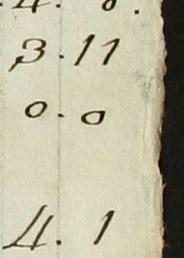 3.11
0.0
4.1